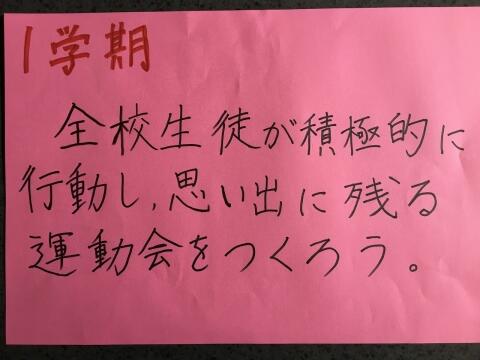 1学期
全校生徒が積極的に
行動し,思い出に残る
運動会をつくろう。